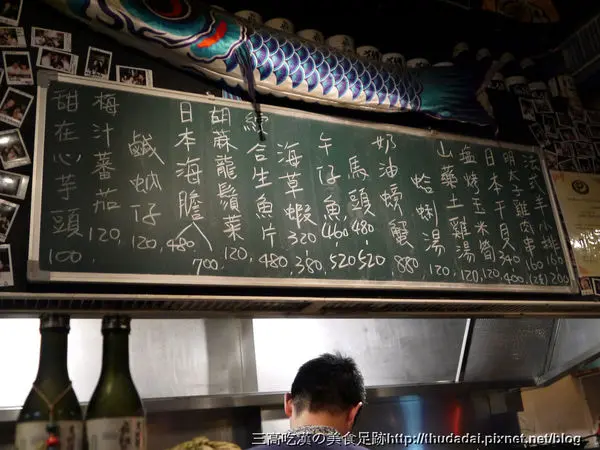 法式羊小排
明太子雞肉串 160
日本干貝 340 400
塩烤玉米筍 120
山藥土雞湯 120
蛤蜊湯 120
奶油螃蟹 880
馬頭 480-520
午仔魚 460-520
海草蝦 320-380
綜合生魚片 480
胡麻龍鬚菜 120
日本海膽 480 700
鹹蚋仔 120
梅汁蕃茄 120
甜在心芋頭 100
三高吃漢の美食足跡http://thudadai.pixnet.net/blog